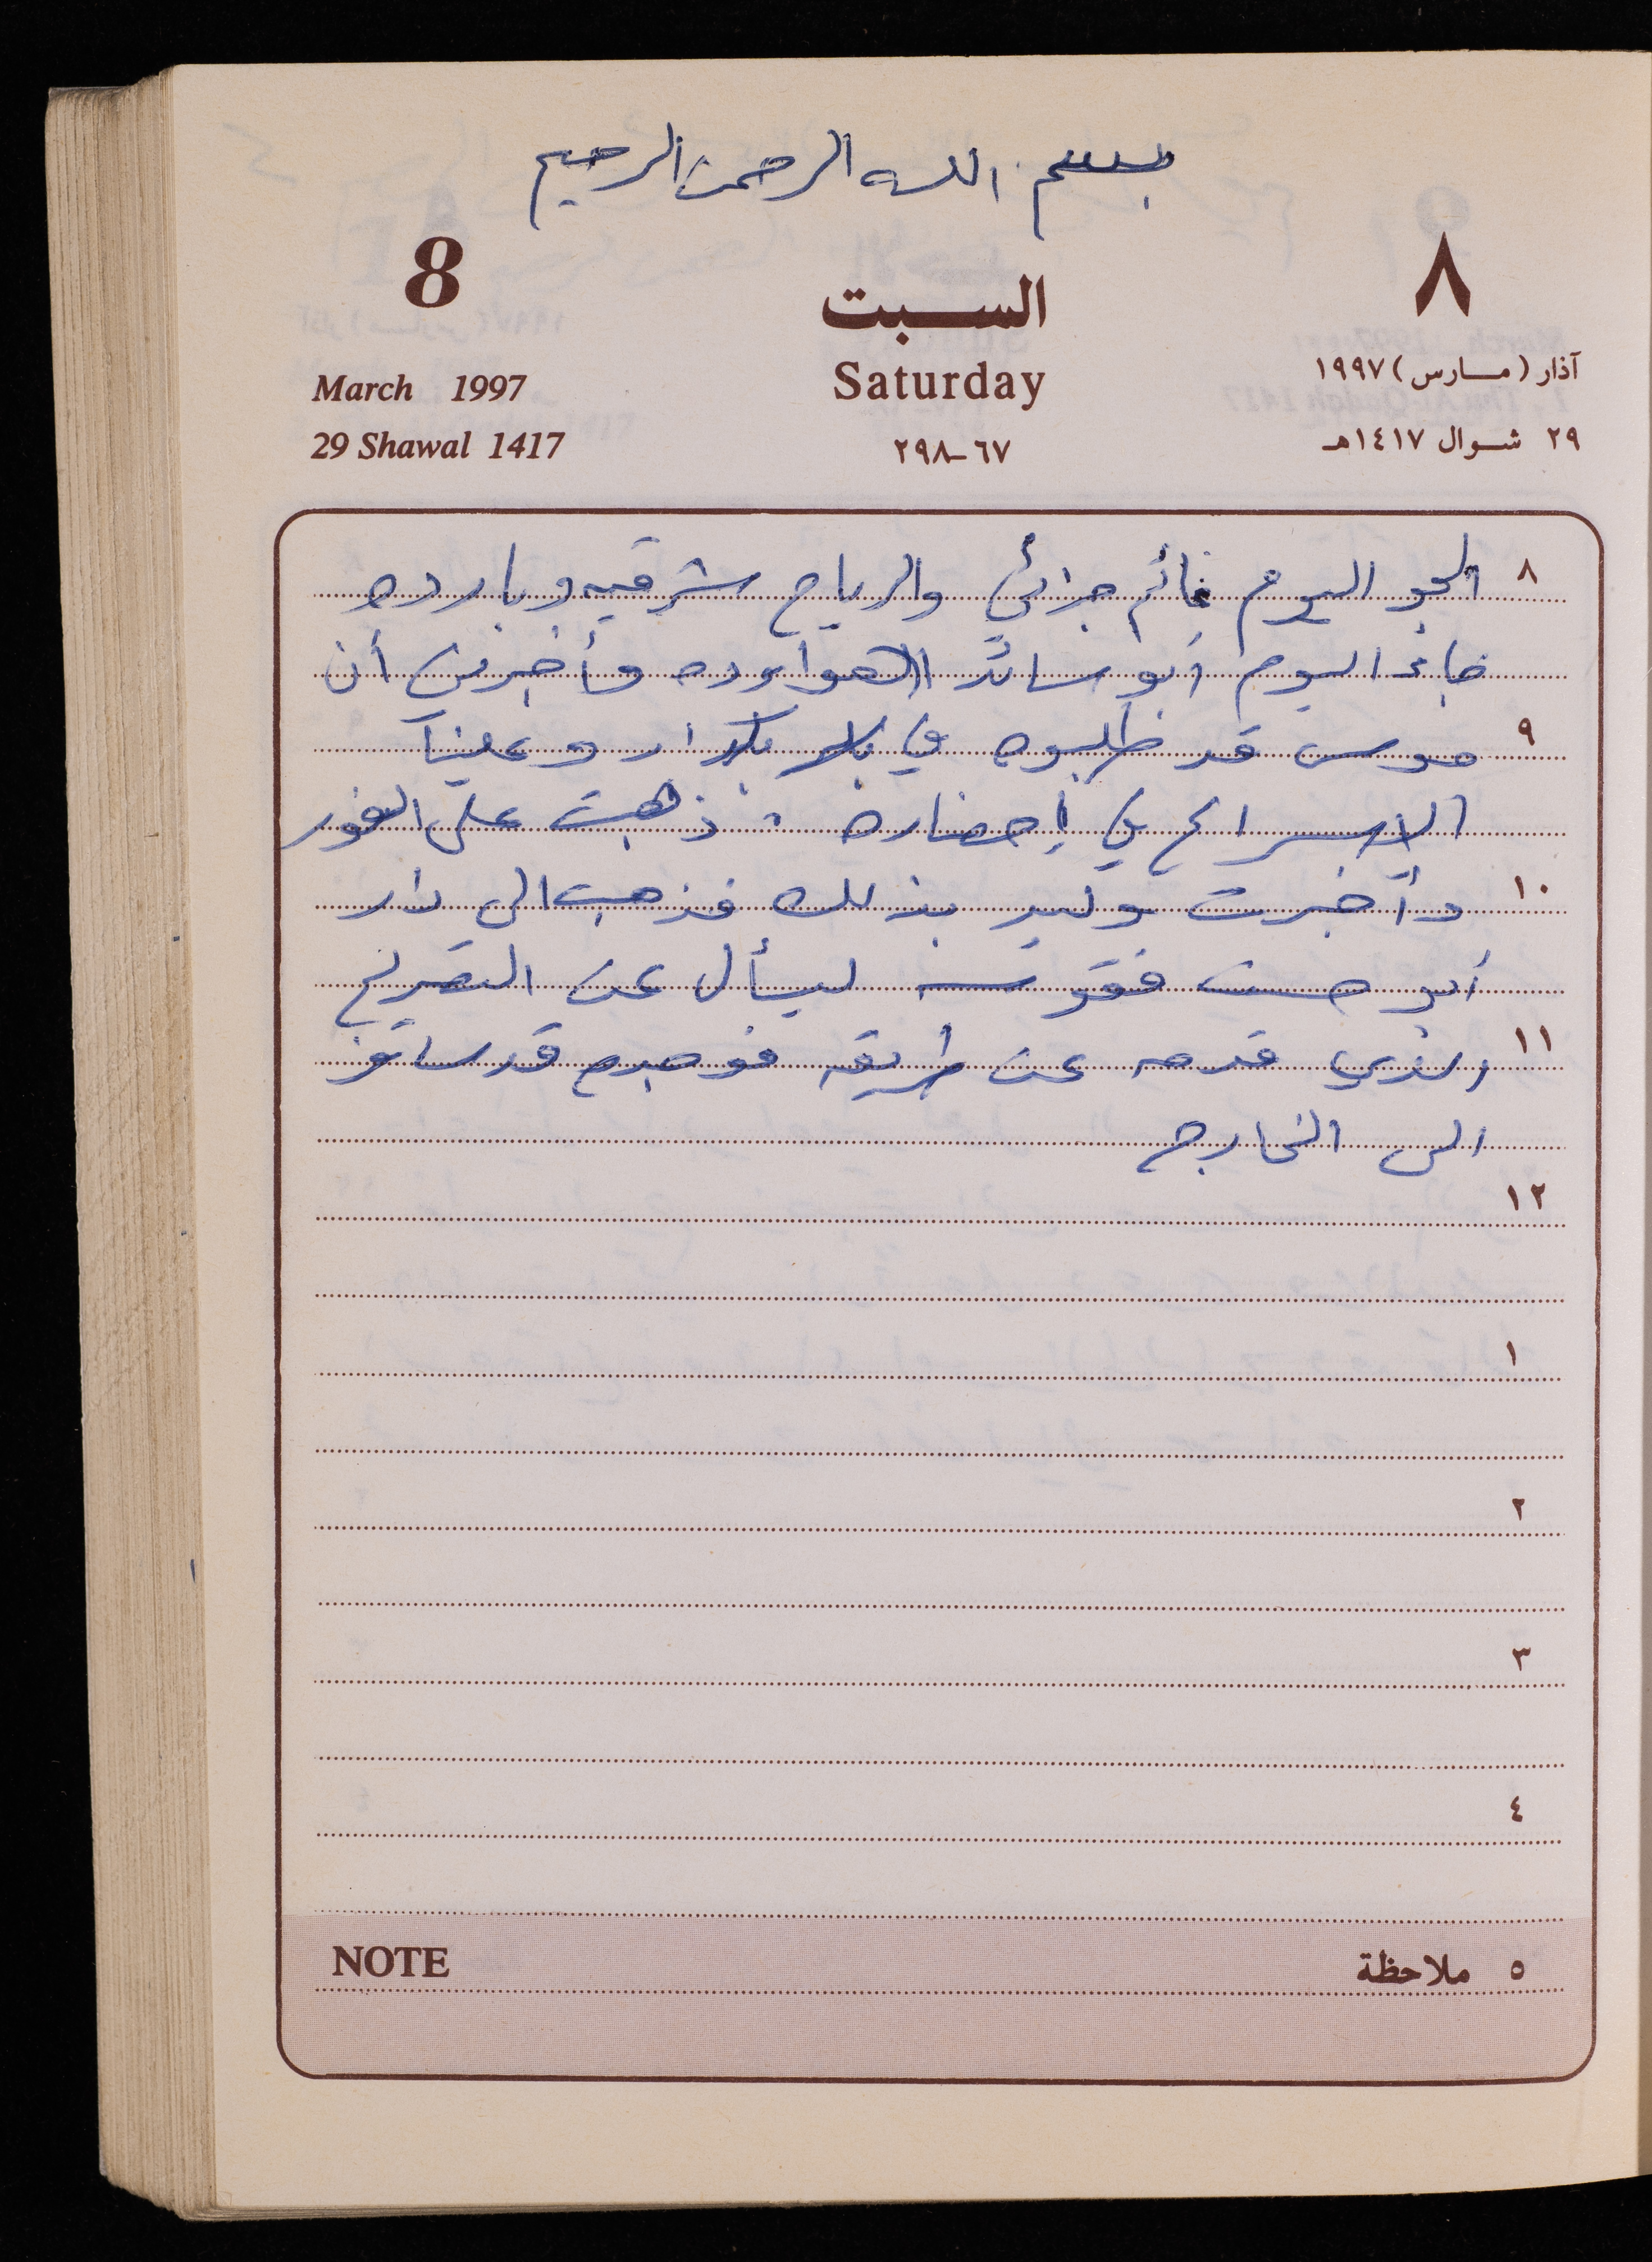 بسم الله الرحمن الرحيم
8 السبت ٨
March 1997 Saturday آذار (مارس) ١٩٩٧
29 Shawal 1417 ٦٧-٢٩٨ ٢٩ شوال ١٤١٧هـ
٨ الجو اليوم غائم جزائي والرياح شرقيه وبارده
جاء اليوم أبو سائد الهواوده وأخبرني أن
٩ موسى قد طلبوه في وعلينا
الاسراع في إحضاره . ذهبت على الفور
١٠ وأخبرت وليد بذلك فذهب الى دار
أبو حسن فقوسه ليسأل عن التصريح
١١ الذي قدمه عن طريقه فوجدهم قد سافر
الى الخارج
١٢
١
٢
٣
٤
NOTE ٥ ملاحظة